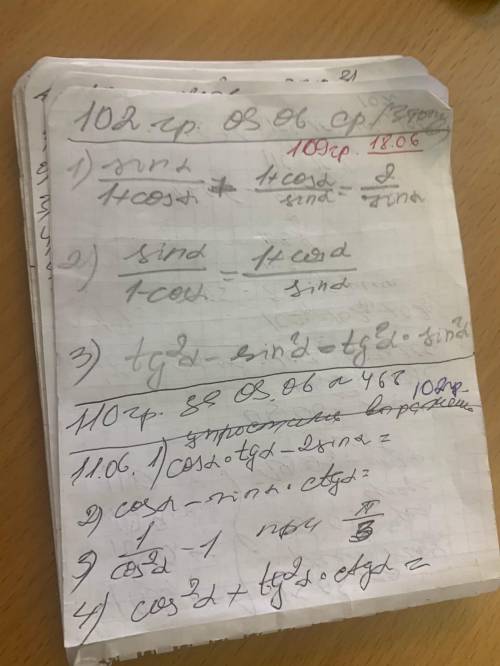 102 гр. 03.06 ср.
109гр. 18.06
1) sinα/(1+cosα) + (1+cosα)/sinα = 2/sinα
2) sinα/(1-cosα) = (1+cosα)/sinα
3) tg²α - sin²α = tg²α · sin²α
110 гр. за 03.06 102гр.
упростить выражения
11.06. 1) cosα · tgα - 2sinα =
2) cosα - sinα · ctgα =
3) 1/cos²α - 1 при π/3
4) cos²α + tg²α · ctgα =